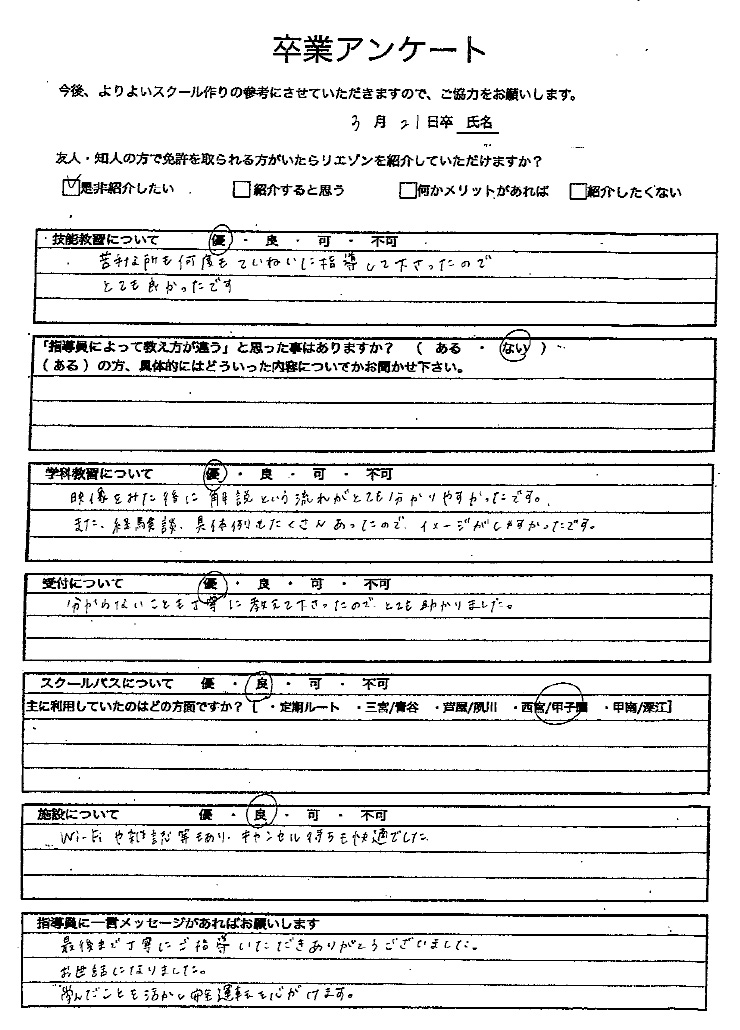 卒業アンケート
今後、よりよいスクール作りの参考にさせていただきますので、ご協力をお願いします。
3月21日卒 氏名
友人・知人の方で免許を取られる方がいたらリエゾンを紹介していただけますか？
☑是非紹介したい □紹介すると思う □何かメリットがあれば □紹介したくない
技能教習について 優 ・ 良 ・ 可 ・ 不可
苦手な所も何度もていねいに指導して下さったので
とても良かったです
「指導員によって教え方が違う」と思った事はありますか？ （ ある ・ ない ）
（ ある ）の方、具体的にはどういった内容についてかお聞かせ下さい。
学科教習について 優 ・ 良 ・ 可 ・ 不可
映像をみた後に解説という流れがとても分かりやすかったです。
また、経験談、具体例もたくさんあったので、イメージがしやすかったです。
受付について 優 ・ 良 ・ 可 ・ 不可
分からないことも丁寧に教えて下さったので、とても助かりました。
スクールバスについて 優 ・ 良 ・ 可 ・ 不可
主に利用していたのはどの方面ですか？ [ ・定期ルート ・三宮/青谷 ・芦屋/夙川 ・西宮/甲子園 ・甲南/深江]
施設について 優 ・ 良 ・ 可 ・ 不可
Wi-Fiや雑誌等もあり、キャンセル待ちも快適でした。
指導員に一言メッセージがあればお願いします
最後まで丁寧にご指導いただきありがとうございました。
お世話になりました。
学んだことを活かし安全運転を心がけます。